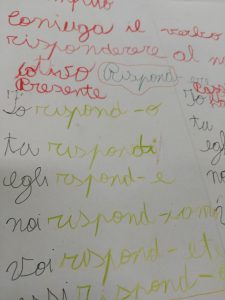 Coniuga il verbo
risponderere al
Rispond
Presente
Io rispond-o
Io
tu rispondi
tu
egli rispond-e
noi rispond-iam
Voi rispond-et
rispond-o